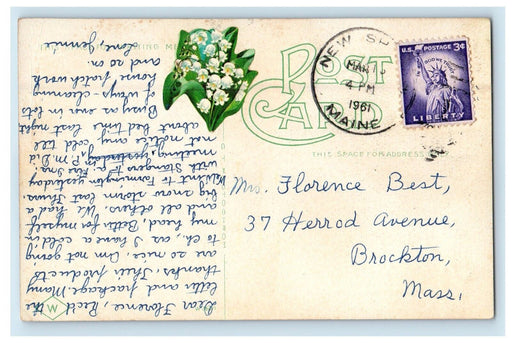 POST
CARD
THIS SPACE FOR ADDRESS
NEW S
MAR 13
4 PM
1961
MAINE
U.S. POSTAGE 3¢
IN GOD WE TRUST
LIBERTY
Mrs. Florence Best,
37 Herrod Avenue,
Brockton,
Mass.
Dear Florence, Rec'd the
letter and package. Many
thanks. Their products
are so nice. Am not going
to ch., as I have a cold in
my head, Both for myself
and all others. We had a
big snow storm last Thurs.
Went to Farmington yesterday
with Stangers to
meeting, yesterday P.M. Did
not notice my cold till
about bed time last night
Busy as ever in lots
of ways - cleaning
house, patch work
and so on.
Love, Jennie
W